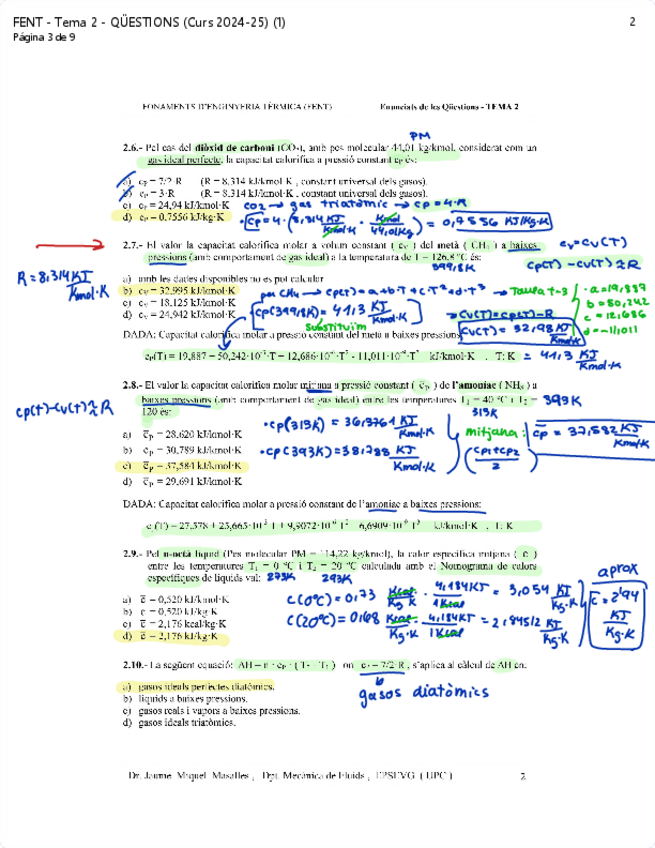 FENT - Tema 2 - QÜESTIONS (Curs 2024-25) (1)
2
Página 3 de 9
FONAMENTS D'ENGINYERIA TÈRMICA (FENT)
Enunciats de les Qüestions - TEMA 2
PM
2.6.- Pel cas del diòxid de carboni (CO₂), amb pes molecular 44,01 kg/kmol, considerat com un
gas ideal perfecte, la capacitat calorífica a pressió constant cP és:
a) cP = 7/2·R (R = 8,314 kJ/kmol·K, constant universal dels gasos).
b) cP = 3·R (R = 8,314 kJ/kmol·K, constant universal dels gasos).
c) cP = 24,94 kJ/kmol·K
CO2 → gas triatòmic → cp = 4·R
d) cP = 0,7556 kJ/kg·K
·cp = 4·(8,314 KJ/Kmol·K · Kmol/44,01Kg) = 0,7556 KJ/Kg·K
2.7.- El valor la capacitat calorífica molar a volum constant ( cV ) del metà ( CH₄ ) a baixes
cv = cv(T)
pressions (amb comportament de gas ideal) a la temperatura de T = 126,8 °C és:
399,8K
cp(T) - cv(T) ≈ R
R = 8,314 KJ/Kmol·K
a) amb les dades disponibles no es pot calcular
b) cV = 32,995 kJ/kmol·K
c) cV = 18,125 kJ/kmol·K
d) cV = 24,942 kJ/kmol·K
per CH4 → cp(T) = a + b·T + c·T² + d·T³ → Taula t-3
· a = 19,887
b = 50,242
c = 12,686
d = -11,011
cp(399,8K) = 41,3 KJ/Kmol·K
substituïm
→ cv(T) = cp(T) - R
cv(T) = 32,98 KJ/Kmol·K
DADA: Capacitat calorífica molar a pressió constant del metà a baixes pressions:
cP(T) = 19,887 + 50,242·10⁻³·T + 12,686·10⁻⁶·T² - 11,011·10⁻⁹·T³ kJ/kmol·K , T: K
= 41,3 KJ/Kmol·K
2.8.- El valor la capacitat calorífica molar mitjana a pressió constant ( c̄P ) de l'amoníac ( NH₃ ) a
baixes pressions (amb comportament de gas ideal) entre les temperatures T₁ = 40 °C i T₂ =
393K
313K
cp(T) - cv(T) ≈ R
120 és:
a) c̄P = 28,620 kJ/kmol·K
b) c̄P = 30,789 kJ/kmol·K
c) c̄P = 37,584 kJ/kmol·K
d) c̄P = 29,691 kJ/kmol·K
·cp(313K) = 36,3764 KJ/Kmol·K
·cp(393K) = 38,788 KJ/Kmol·K
mitjana:
(cp1+cp2)/2
c̄p = 37,582 KJ/Kmol·K
DADA: Capacitat calorífica molar a pressió constant de l'amoníac a baixes pressions:
cP(T) = 27,578 + 25,663·10⁻³·T + 9,9072·10⁻⁶·T² - 6,6909·10⁻⁹·T³ kJ/kmol·K , T: K
2.9.- Pel n-octà líquid (Pes molecular PM = 114,22 kg/kmol), la calor específica mitjana ( c̄ )
entre les temperatures T₁ = 0 °C i T₂ = 20 °C calculada amb el Nomograma de calors
específiques de líquids val:
273K
293K
aprox
a) c̄ = 0,520 kJ/kmol·K
b) c̄ = 0,520 kJ/kg·K
c) c̄ = 2,176 kcal/kg·K
d) c̄ = 2,176 kJ/kg·K
c(0°C) = 0,73 Kcal/Kg·K · 4,184KJ/1Kcal = 3,054 KJ/Kg·K
c(20°C) = 0,68 Kcal/Kg·K · 4,184KJ/1Kcal = 2,84512 KJ/Kg·K
c̄ = 2,94 KJ/Kg·K
2.10.- La següent equació: ΔH = n · cP · ( T₂ - T₁ ) on cP = 7/2·R , s'aplica al càlcul de ΔH en:
a) gasos ideals perfectes diatòmics.
b) líquids a baixes pressions.
c) gasos reals i vapors a baixes pressions.
d) gasos ideals triatòmics.
gasos diatòmics
Dr. Jaume Miquel Masalles , Dpt. Mecànica de Fluids , EPSEVG ( UPC )
2